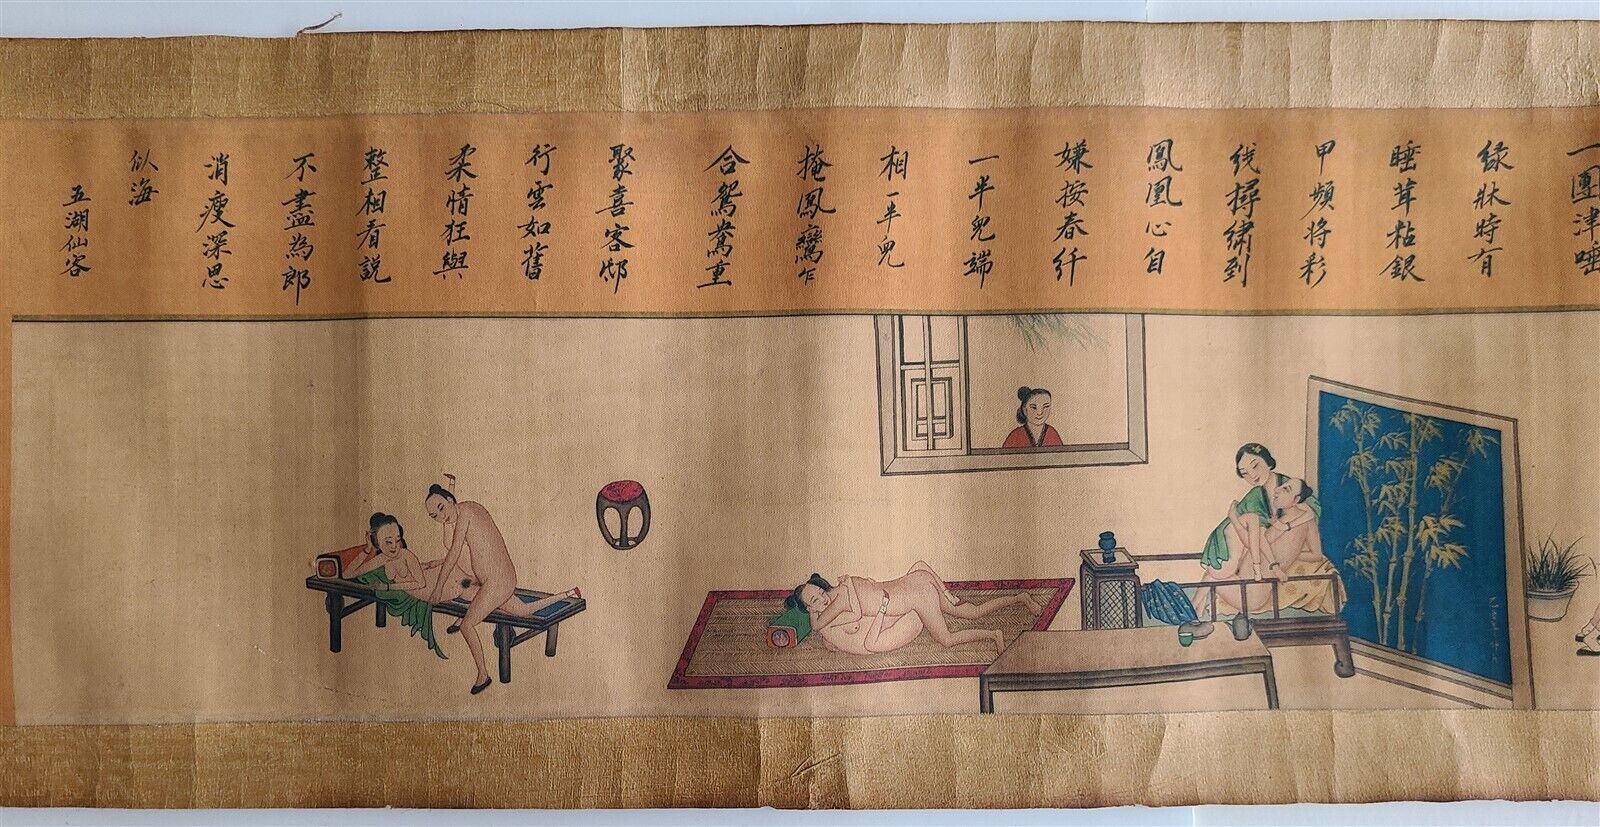 一團津唾
緑牀時有
睡茸粘銀
甲頻將彩
线撏繡到
鳳凰心自
嫌按春纤
一半兒端
相一半兒
掩鳳鸞乍
合鴛鴦重
聚喜客邸
行雲如舊
柔情狂與
整相看説
不盡為郎
消瘦深思
似海
五湖仙客